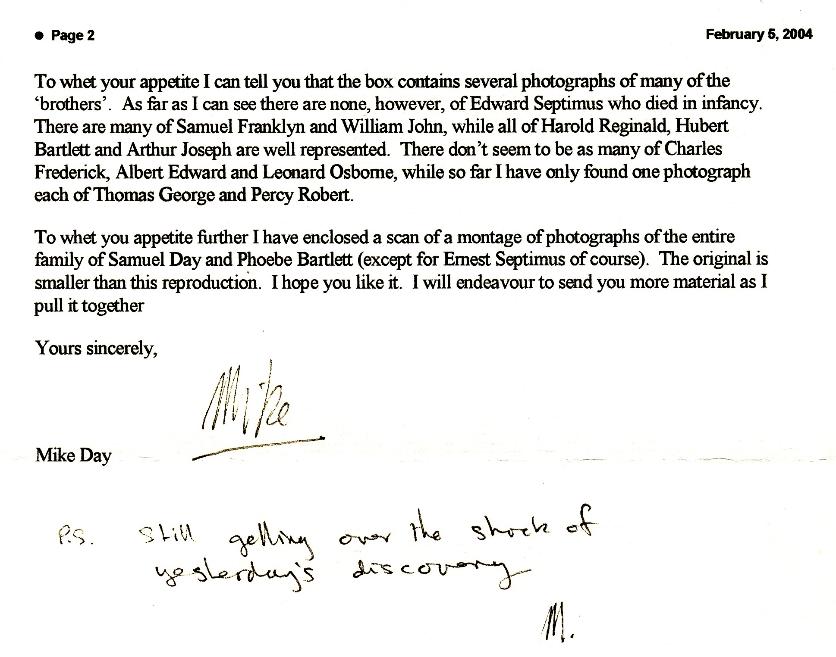 • Page 2 February 5, 2004
To whet your appetite I can tell you that the box contains several photographs of many of the
‘brothers’. As far as I can see there are none, however, of Edward Septimus who died in infancy.
There are many of Samuel Franklyn and William John, while all of Harold Reginald, Hubert
Bartlett and Arthur Joseph are well represented. There don’t seem to be as many of Charles
Frederick, Albert Edward and Leonard Osborne, while so far I have only found one photograph
each of Thomas George and Percy Robert.
To whet you appetite further I have enclosed a scan of a montage of photographs of the entire
family of Samuel Day and Phoebe Bartlett (except for Ernest Septimus of course). The original is
smaller than this reproduction. I hope you like it. I will endeavour to send you more material as I
pull it together
Yours sincerely,
Mike
Mike Day
P.S. Still getting over the shock of
yesterday's discovery
M.